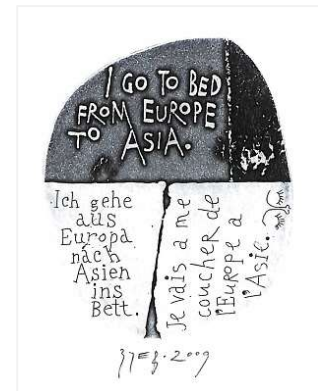 I GO TO BED
FROM EUROPE
TO ASIA.
Ich gehe
aus
Europa
nach
Asien
ins
Bett.
Je vais a me
coucher de
l'Europe a
l'Asie.
2009